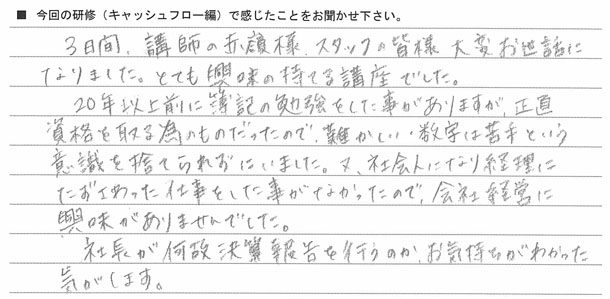 ■ 今回の研修（キャッシュフロー編）で感じたことをお聞かせ下さい。
3日間、講師の赤嶺様、スタッフの皆様 大変お世話に
なりました。とても興味の持てる講座でした。
20年以上前に簿記の勉強をした事がありますが、正直
資格を取る為のものだったので、難かしい、数字は苦手という
意識を捨てられずにいました。又、社会人になり経理に
たずさわった仕事をした事がなかったので、会社経営に
興味がありませんでした。
社長が何故決算報告を行うのか、お気持ちがわかった
気がします。